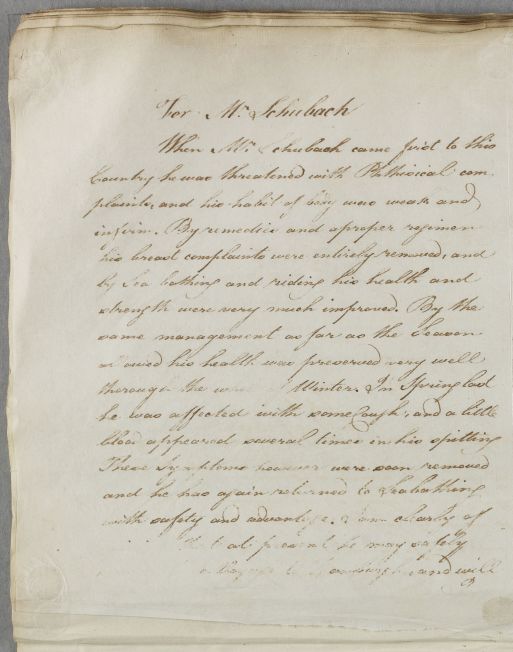 For Mr. Schubach
When Mr. Schubach came first to this
Country he was threatened with Phthisical com
plaints, and his habit of body was weak and
infirm. By remedies and a proper regimen
his breast complaints were entirely removed, and
by Sea bathing and riding his health and
strength were very much improved. By the
same management as far as the Season
allowed his health was preserved very well
thorough the Winter. In Spring last
he was affected with some Cough, and a little
blood appeared several times in his spitting
These Symptoms however were soon removed
and he has again returned to Seabathing
with safety and advantage. I am clearly of
that at present he may safely
a Voyage to and will